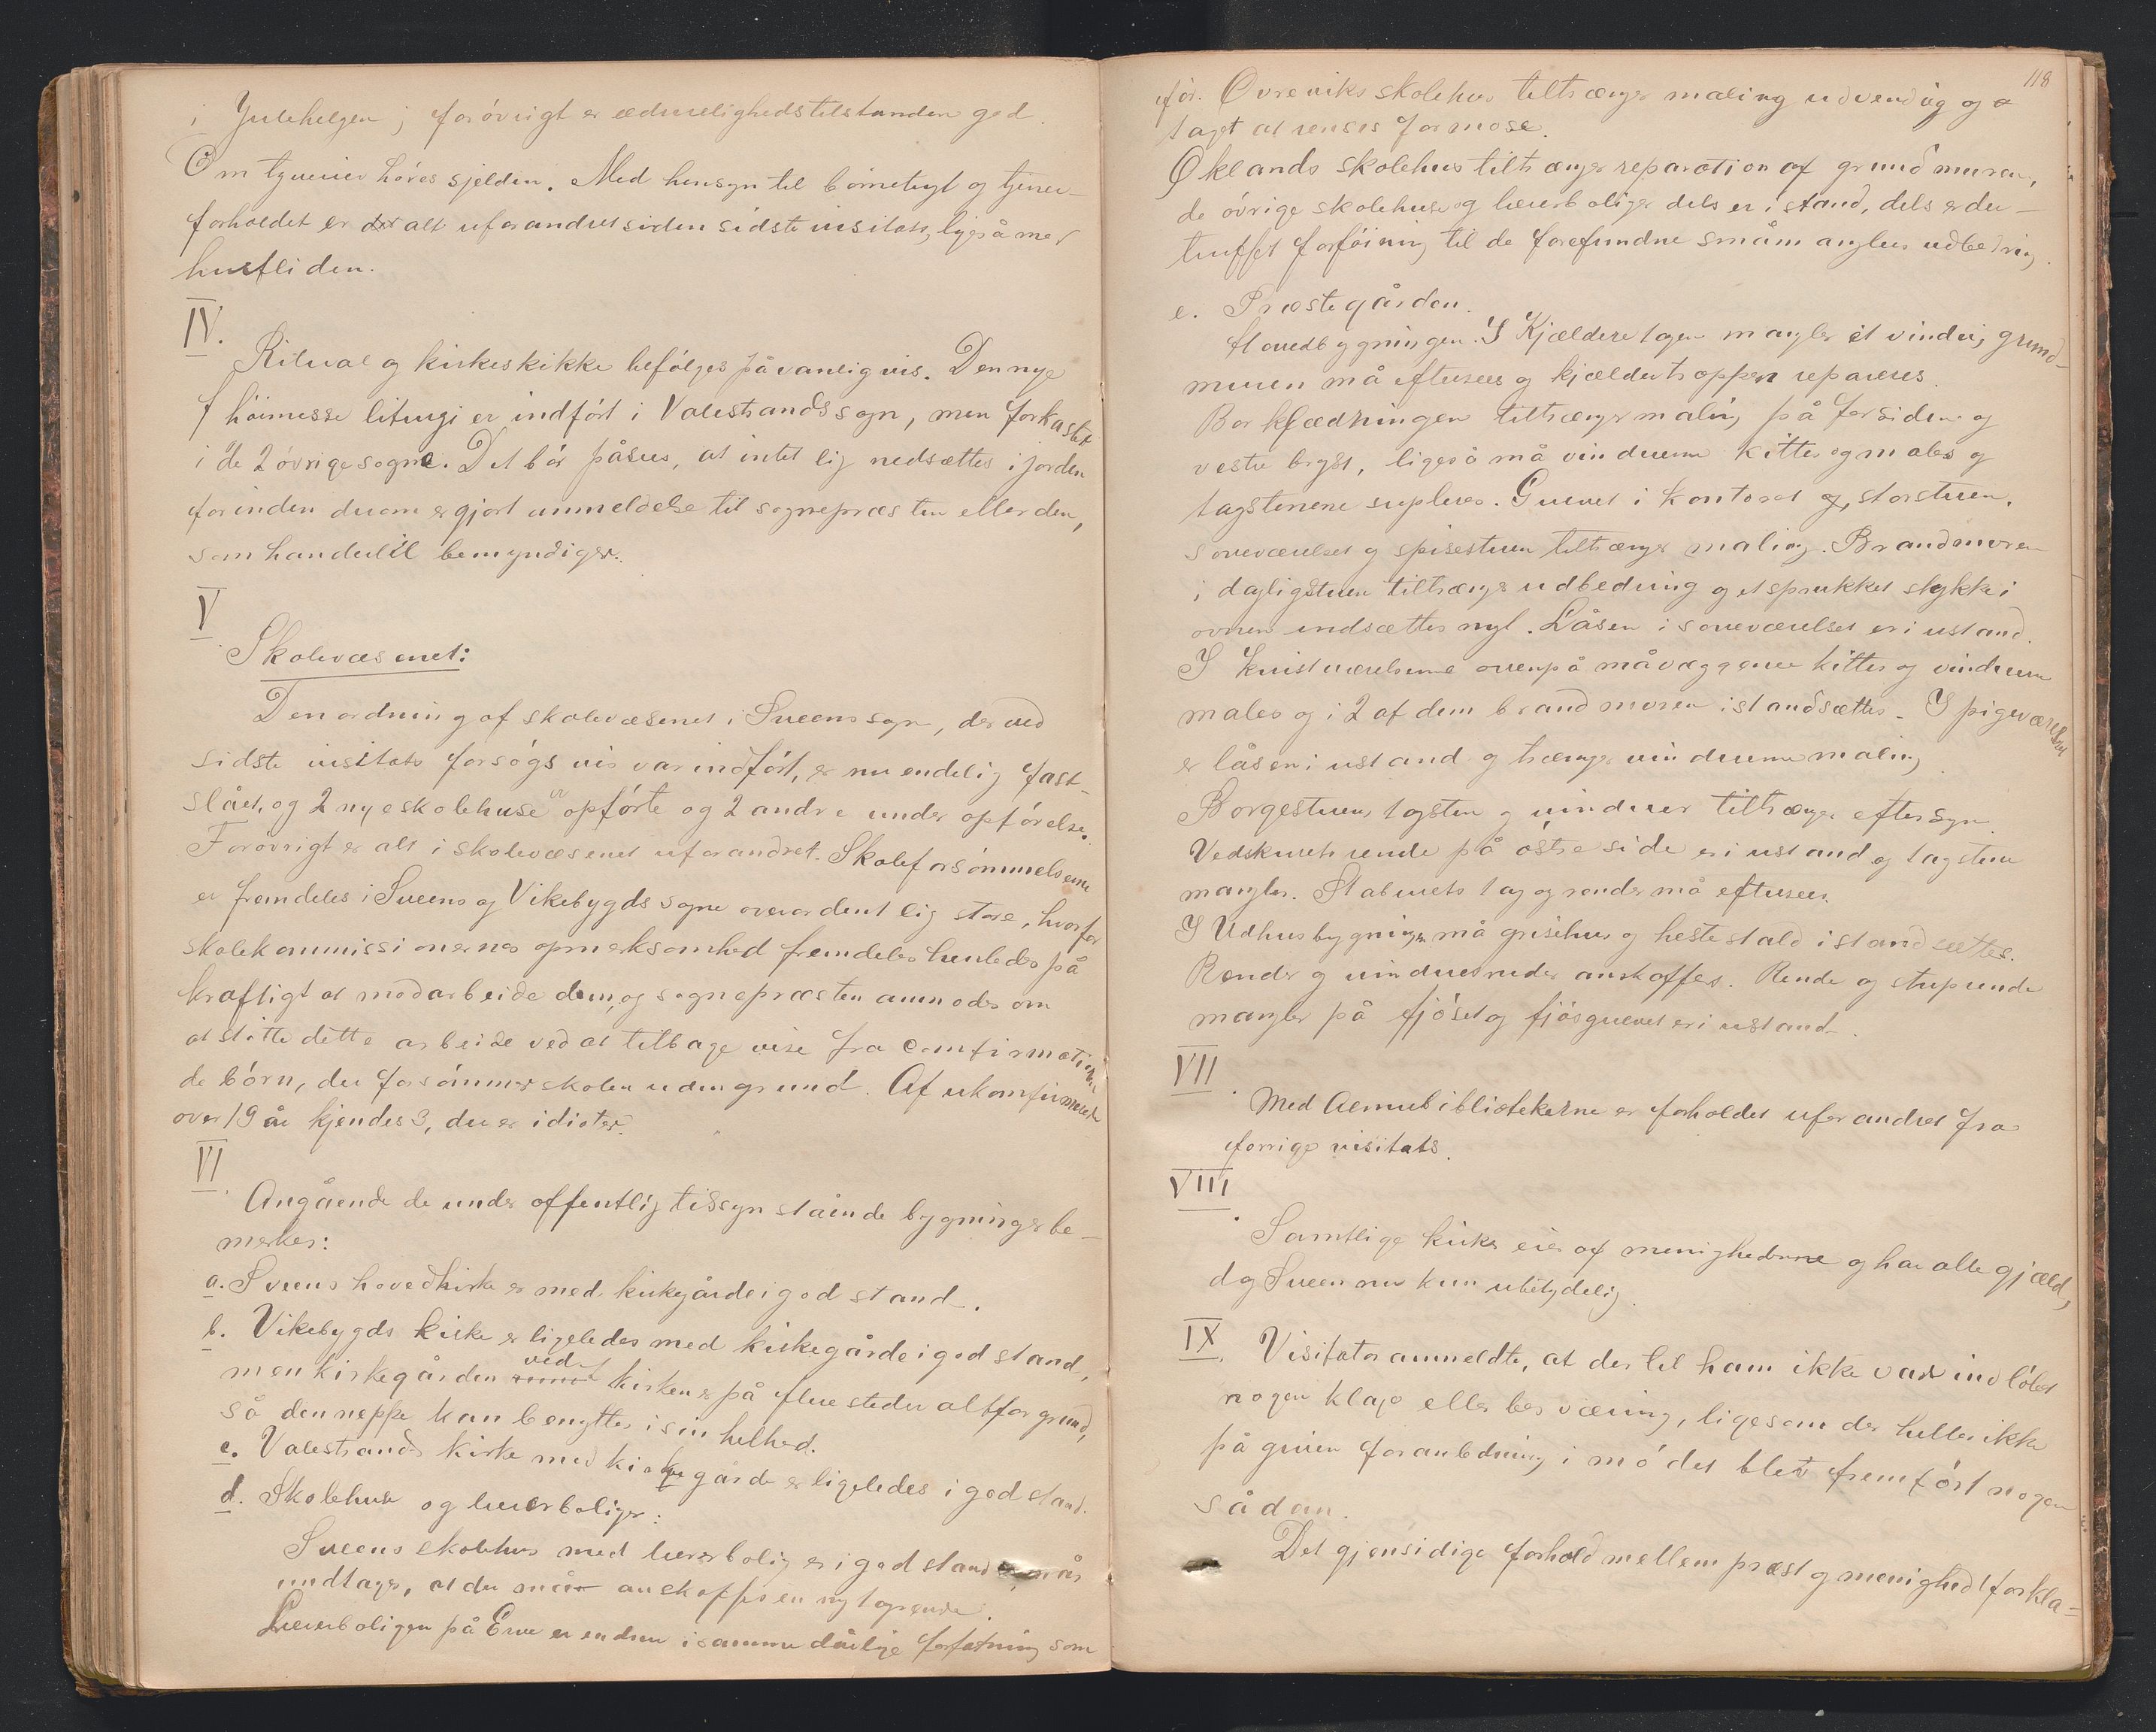 i Julehelgen; forövrigt er ædruelighedstilstanden god.
Om tyverier höres sjelden. Med hensyn til börnetugt og tjener-
forholdet er alt uforandret siden sidste visitats, ligeså med
husfliden.
IV.
Ritual og kirkeskikke befölges på vanlig vis. Den nye
höimesse liturgi er indfört i Valestrands sogn, men forkastet
i de 2 övrige sogne. Det bör påsees, at intet lig nedsættes i jorden
forinden derom er gjort anmeldelse til sognepræsten eller den,
som han dertil bemyndiger.
V
Skolevæsenet:
Den ordning af skolevæsenet i Sveens sogn, der ved
sidste visitats forsögsvis var indfört, er nu endelig fast-
slået, og 2 nye skolehuse er opförte og 2 andre under opförelse.
Forövrigt er alt i skolevæsenet uforandret. Skoleforsömmelserne
er fremdeles i Sveens og Vikebygds sogne overordentlig store, hvorfor
skolekommissionernes opmerksomhed fremdeles henledes på
kraftigt at modarbeide dem, og sognepræsten anmodes om
at stötte dette arbeide ved at tilbage vise fra Confirmationen
de börn, der forsömmer skolen uden grund. Af ukonfirmerede
over 19 år kjendes 3, der er idioter.
VI.
Angående de under offentlig tilsyn stående bygninger be-
merkes:
a. Sveens hovedkirke er med kirkegårde i god stand.
b. Vikebygds kirke er ligeledes med kirkegårde i god stand,
men kirkegården ved kirken er på flere steder altfor grund,
så den neppe kan benyttes i sin helhed.
c. Valestrands kirke med kirkegårde er ligeledes i god stand.
d. Skolehuse og lærerboliger:
Sveens skolehus med lærerbolig er i god stand, når
undtages, at der må anskaffes en ny tagrende.
Lærerboligen på Erve er endnu i samme dårlige forfatning som
118
för. Ovreviks skolehus tiltrænger maling udvendig og
taget at renses for mose.
Öklands skolehus tiltrænger reparation af grundmuren,
de övrige skolehuse og lærerboliger dels er i stand, dels er der
truffet forföining til de forefundne småmanglers udbedring.
e. Præstegården.
Hovedbygningen. I Kjælderetagen mangler et vindu, grund-
muren må eftersees og kjældertrappen repareres.
Bordklædningen tiltrænger maling på forsiden og
vestre bryst, ligeså må vinduerne kittes og males og
tagstenene supleres. Gulvet i kontoret og, storstuen,
soveværelset og spisestuen tiltrænger maling. Brandmuren
i dagligstuen tiltrænger udbedring og et sprukket stykke i
ovnen indsættes nyt. Låsen i soveværelset er i ustand.
I kvistværelserne ovenpå må væggene kittes og vinduerne
males og i 2 af dem brandmuren istandsættes. I pigeværelset
er låsen i ustand og trænger vinduerne maling
Borgestuens tagsten og vinduer tiltrænger eftersyn.
Vedskurets rende på östre side er i ustand og tagstene
mangler. Staburets tag og render må eftersees.
I Udhusbygningen må grisehus og hestestald istandsættes.
Render og vinduesruder anskaffes. Rende og stuprende
mangler på fjöset og fjösgulvet er i ustand.
VII.
Med Almuebibliotekerne er forholdet uforandret fra
forrige visitats.
VIII.
Samtlige kirker eies af menighederne og har alle gjæld,
dog Sveen nu kun ubetydelig.
IX. Visitator anmeldte, at der til ham ikke var indlöbet
nogen klage eller besværing, ligesom der heller ikke
på given foranledning i mödet blev fremfört nogen
sådan.
Det gjensidige forhold mellem præst og menighed forkla-